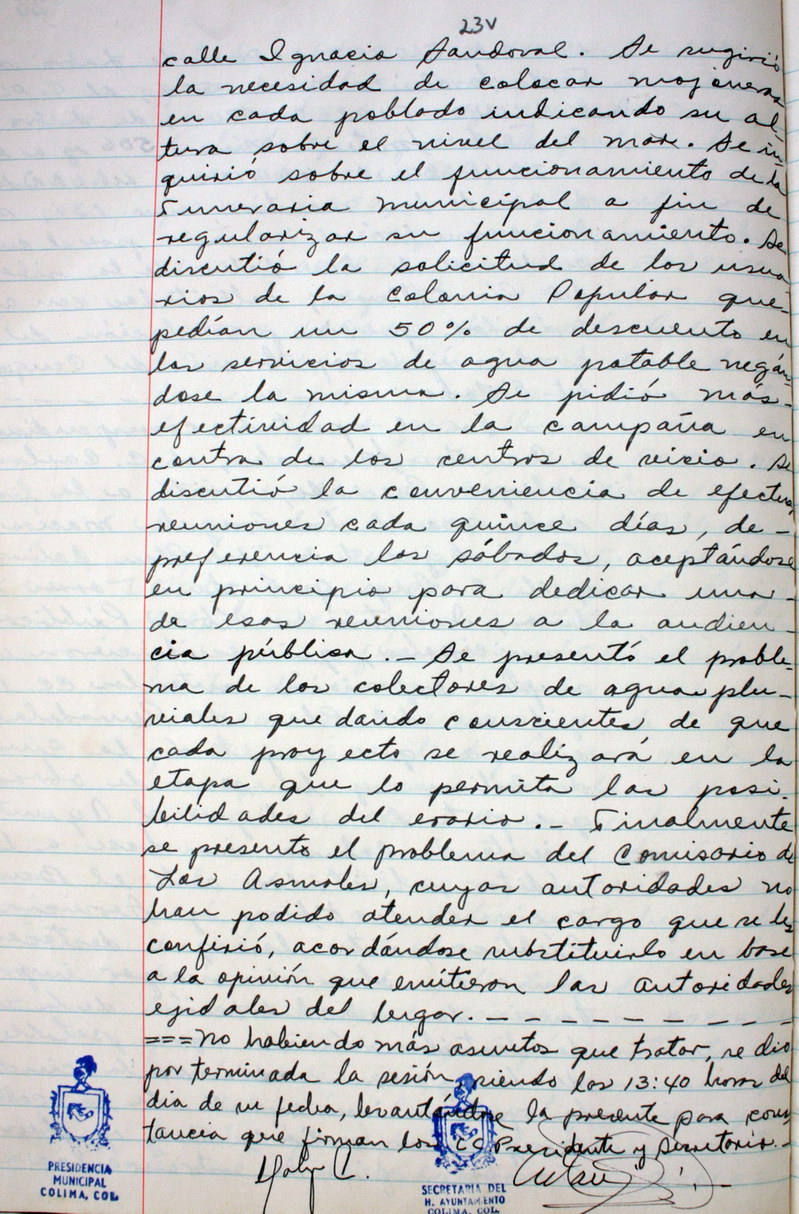 23V
calle Ignacio Sandoval. Se sugirió
la necesidad de colocar mojoneras
en cada poblado indicando su al-
tura sobre el nivel del mar. Se in-
quirió sobre el funcionamiento de la
Funeraria Municipal a fin de
regularizar su funcionamiento. Se
discutió la solicitud de los usua-
rios de la Colonia Popular que
pedían un 50% de descuento en
los servicios de agua potable negán-
dose la misma. Se pidió más
efectividad en la campaña en
contra de los centros de vicio. Se
discutió la conveniencia de efectuar
reuniones cada quince días, de-
preferencia los sábados, aceptándose
en principio para dedicar una
de esas reuniones a la audien-
cia pública.- Se presentó el proble-
ma de los colectores de aguas plu-
viales quedando conscientes de que
cada proyecto se realizará en la
etapa que lo permita las posi-
bilidades del erario.- Finalmente
se presento el problema del Comisario de
Los Asmoles, cuyas autoridades no
han podido atender el cargo que se les
confirió, acordándose substituirlo en base
a la opinión que emitieron las autoridades
ejidales del lugar. - - - - - - - - -
===No habiendo más asuntos que tratar, se dio
por terminada la sesión, siendo las 13:40 horas del
día de su fecha, levantándose la presente para cons-
tancia que firman los CC Presidente y Secretario.-
PRESIDENCIA
MUNICIPAL
COLIMA, COL.
SECRETARIA DEL
H. AYUNTAMIENTO
COLIMA, COL.